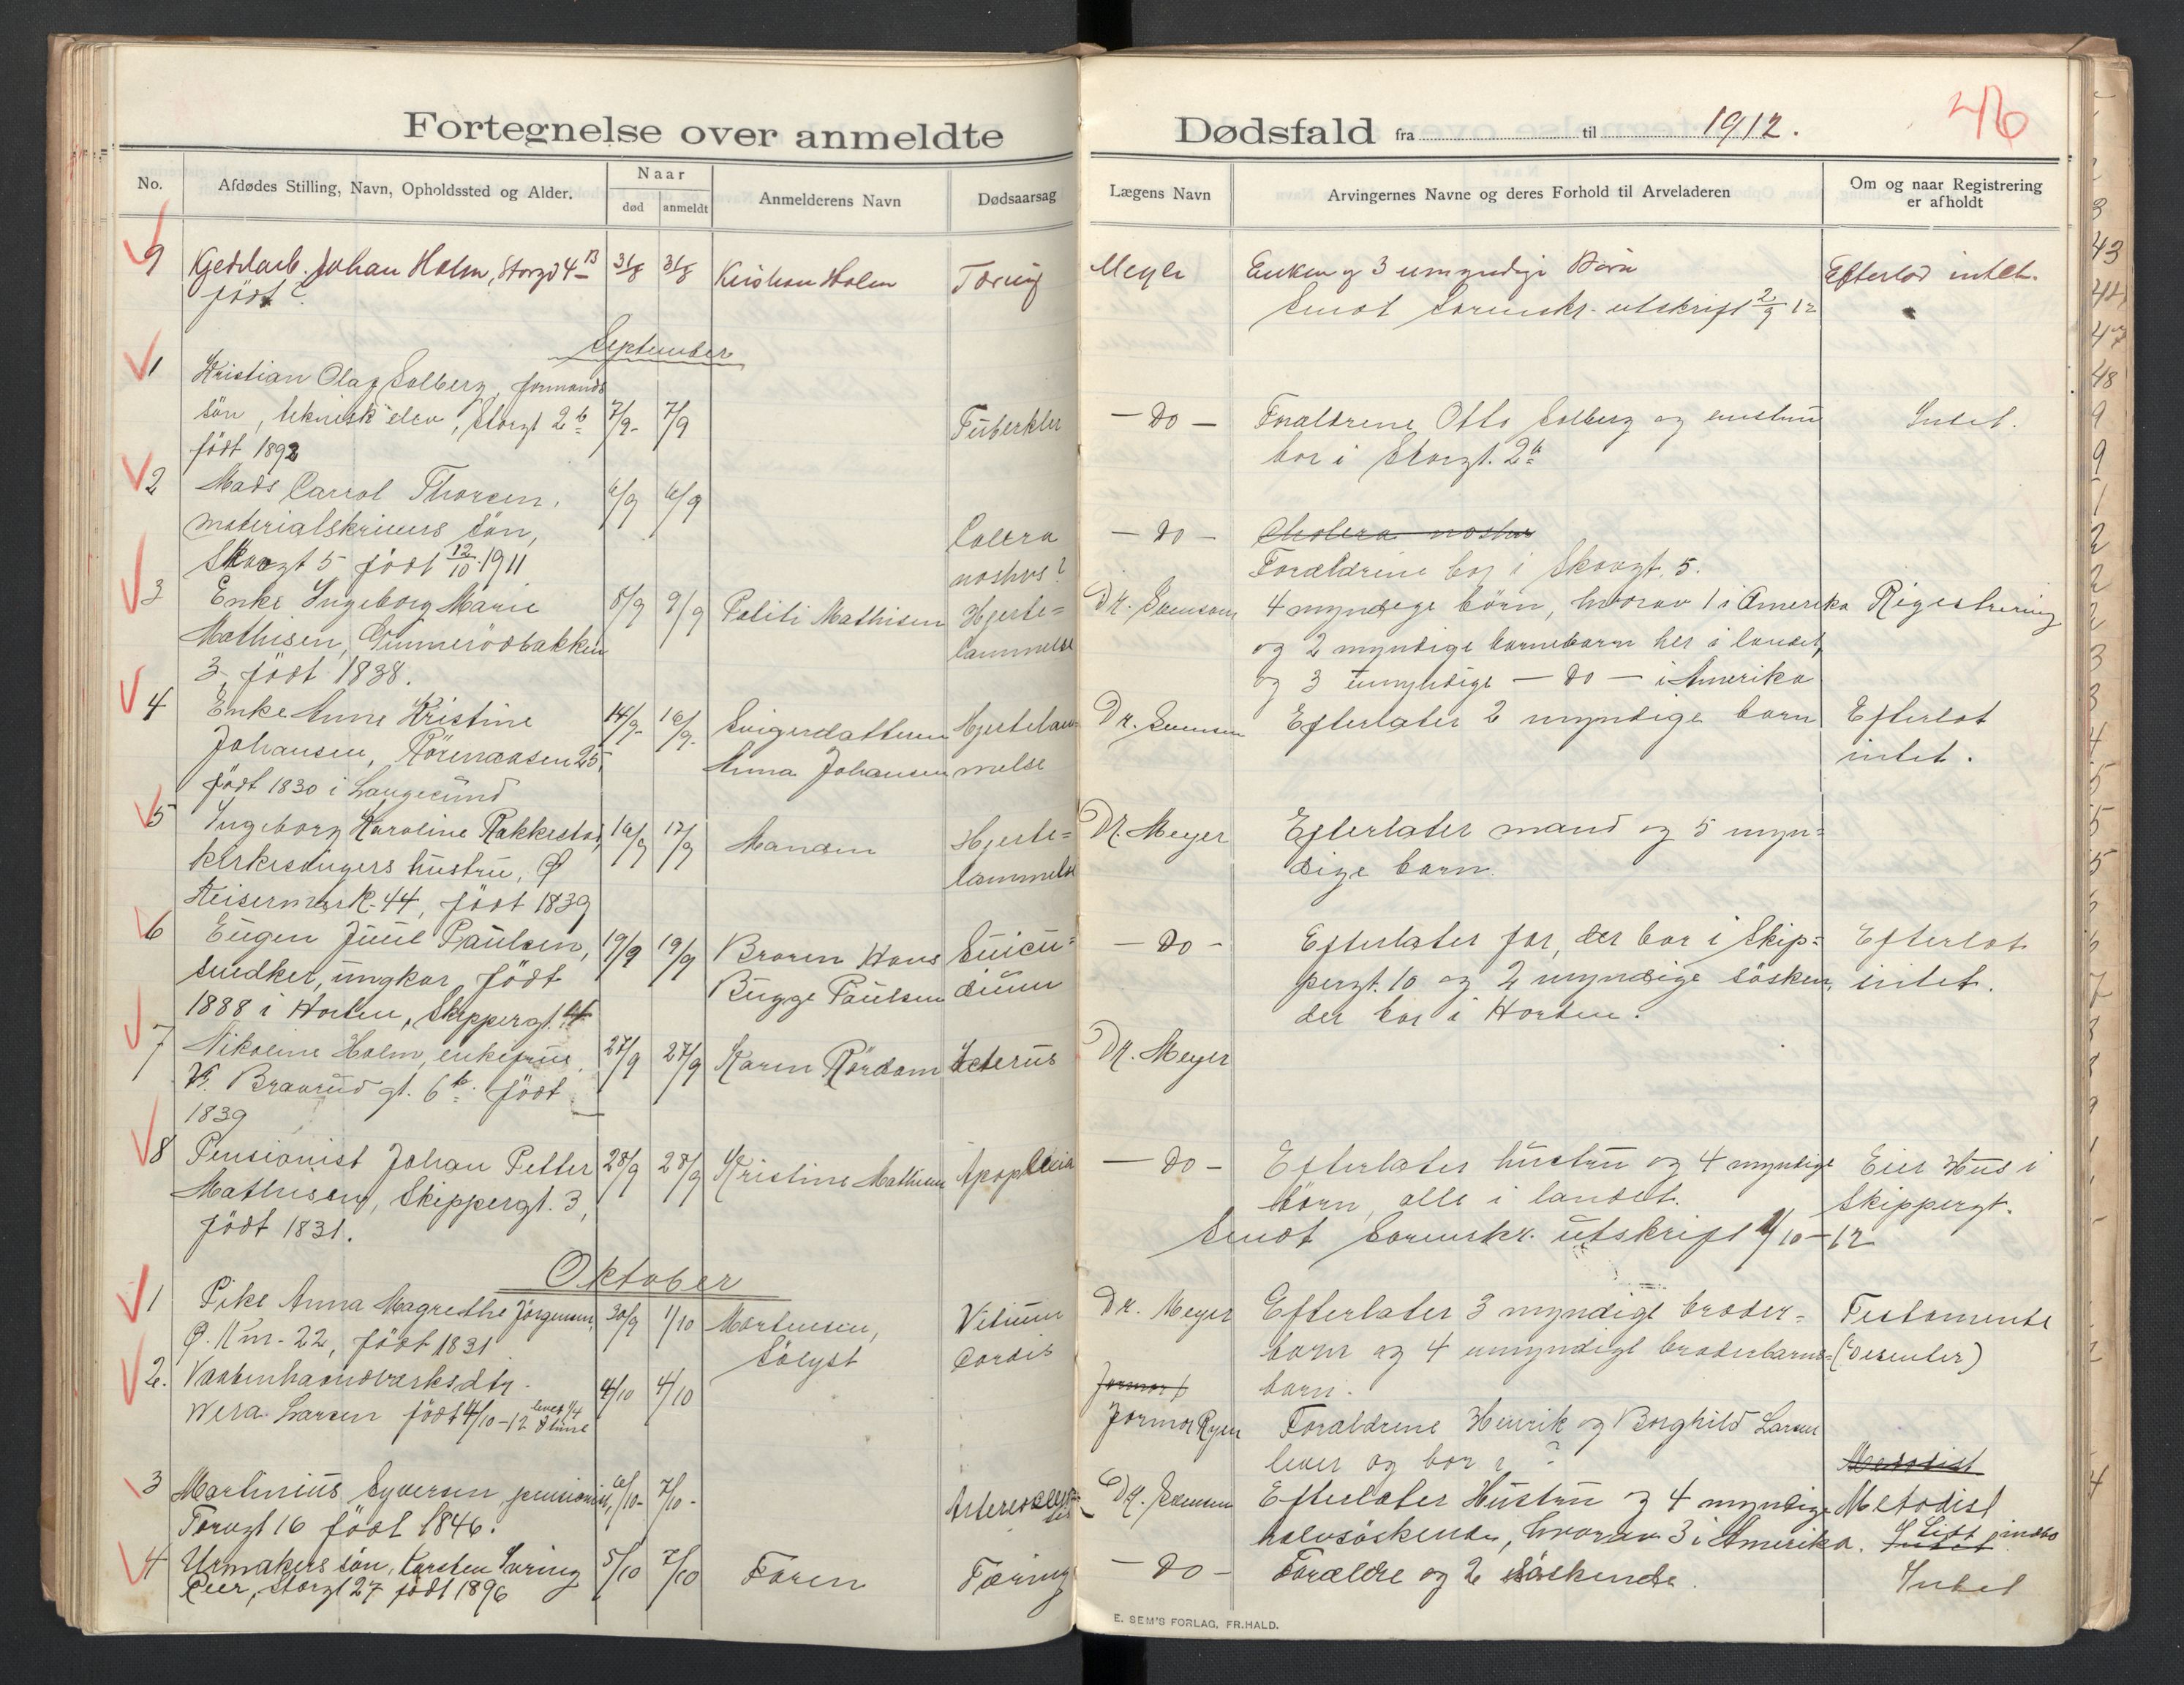 Fortegnelse over anmeldte
Dødsfald fra til 1912.
46
No.
Afdødes Stilling, Navn, Opholdssted og Alder.
Naar
død
anmeldt
Anmelderens Navn
Dødsaarsag
Lægens Navn
Arvingernes Navne og deres Forhold til Arveladeren
Om og naar Registrering
er afholdt
9 Johan Holm, Storgt 4 B 31/8 31/8 Holm Tæring Meyer Enken og 3 umyndige Børn Efterlod intet.
født
Sendt Sorenskr. utskrift 2/9 12
September
1 Kristian Olaf Solberg, formands
søn, teknisk elev, Storgt 2 b 7/9 7/9 Tuberkler — Do — Forældrene Otto Solberg og
født 1892 bor i Storgt. 2 b Intet.
2 Mads Carrol Thorsen, 6/9 6/9
materialskrivers søn, Colera — Do — Cholera nostras
Skovgt 5 født 12/10 1911 nostras? Forældrene bor i Skovgt. 5.
3 Enke Ingeborg Marie 8/9 9/9 Politi Mathisen Hjerte= Dr. 4 myndige børn, hvorav 1 i Amerika Rigestrering
Mathisen, Gunnerödbakken lammelse og 2 myndige barnebarn her i landet,
3, født 1838. og 3 umyndige — Do — i Amerika
4 Enke Anne Kristine 14/9 16/9 Svigerdatteren Hjertelam- Dr. Efterlater 2 myndige barn Efterlot
Johansen, 25, Anna Johansen melse intet.
født 1830 i Langesund
5 Ingeborg Karoline Rakkestad, 16/9 17/9 Manden Hjerte= Dr. Meyer Efterlater mand og 5 myn=
kirkesangers hustru, lammelse dige barn.
44, født 1839
6 Eugen Juul Paulsen, 19/9 19/9 Broren Hans Suicu= — Do — Efterlater far, der bor i Skip= Efterlot
snedker, ungkar, født Bugge Paulsen dium pergt. 10 og 2 myndige søsken, intet.
1888 i Horten, Skippergt. der bor i Horten.
7 Nikoline Holm, enkefrue, 27/9 27/9 Karen Rördam Icterus Dr. Meyer
V. Braarud gt. 6 b. født
1839
8 Pensionist Johan Petter 28/9 28/9 Kristine Mathisen Apoplexia — Do — Efterlater hustru og 4 myndige Eier Hus i
Mathisen, Skippergt. 3, børn, alle i landet. Skippergt.
født 1831. Sendt Sorenskr. utskrift 1/10-12
Oktober
1 Pike Anna Magrethe Jørgensen, 30/9 1/10 Mortensen, Vitium Dr. Meyer Efterlater 3 myndige broder= Testamente
22, født 1831 Sölyst Cordis barn og 4 umyndige broderbarns=
barn.
2. Vaabenhaandverksdtr. 4/10 4/10
Wera Larsen født 4/10-12 levet 1/4 time Jormor Ryen Forældrene Henrik og Borghild Larsen
lever og bor i ?
3 Martinius Syversen, pensionist, 6/10 7/10 Dr. Efterlater Hustru og 4 myndige Metodist
Torvgt 16 født 1846. halvsøskende, hvorav 3 i Amerika.
4 Urmakers søn, Karsten 5/10 7/10 Faren Tæring — Do — Forældre og 2 søskende. Intet
Storgt 27 født 1896
E. SEM'S FORLAG, FR.HALD.